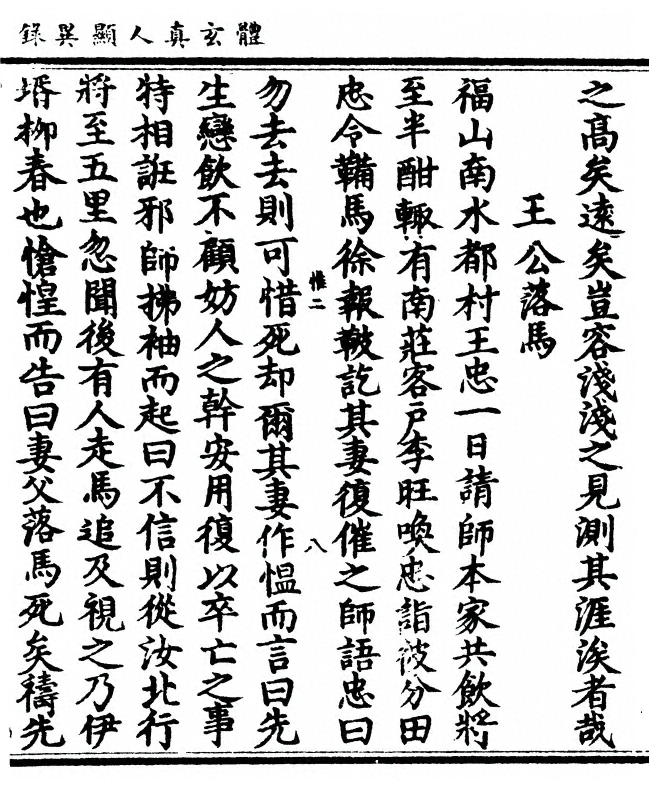 體玄真人顯異錄
之高矣遠矣豈容淺淺之見測其涯涘者哉
王公落馬
福山南水都村王忠一日請師本家共飲將
至半酣輙有南莊客戶李旺喚忠詣彼分田
忠令鞴馬徐報鞁訖其妻復催之師語忠曰
惟二
八
勿去去則可惜死却爾其妻作愠而言曰先
生戀飲不顧妨人之幹安用復以卒亡之事
特相誑邪師拂袖而起曰不信則從汝北行
將至五里忽聞後有人走馬追及視之乃伊
壻柳春也愴惶而告曰妻父落馬死矣禱先